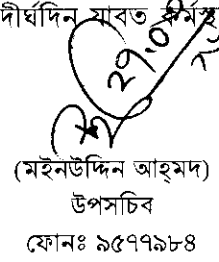 দীর্ঘদিন যাবত কর্মস্থ
২৭.০৮
(মইনউদ্দিন আহ্‌মদ)
উপসচিব
ফোনঃ ৯৫৭৭৯৮৪